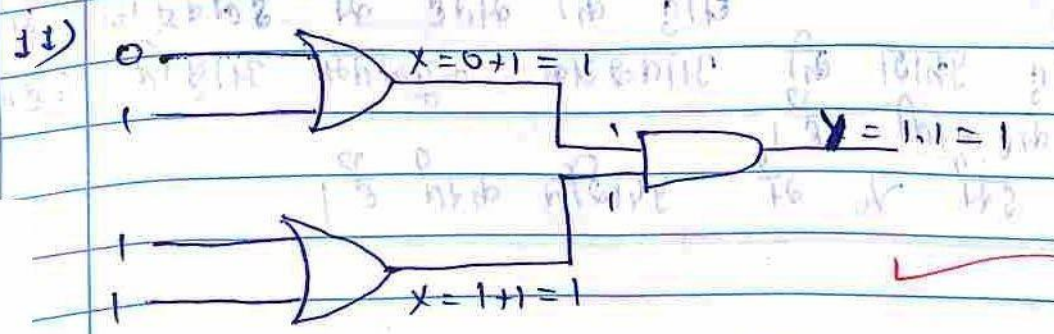 11)
0
X = 0+1 = 1
1
1
Y = 1.1 = 1
1
1
1
X = 1+1 = 1